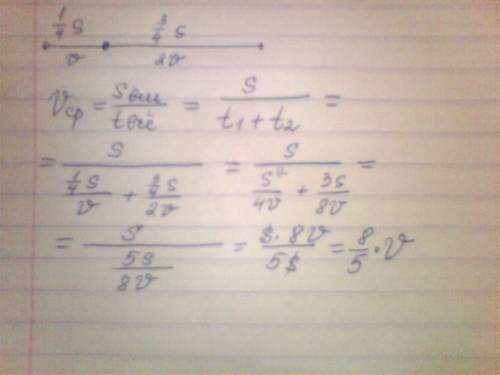 1/4 S 3/4 S
v 2v
Vср = Sвсё / tвсё = S / (t1 + t2) =
= S / ((1/4 S)/v + (3/4 S)/2v) = S / (S/4v + 3S/8v) =
= S / (5S/8v) = S·8v / 5S = 8/5 · v